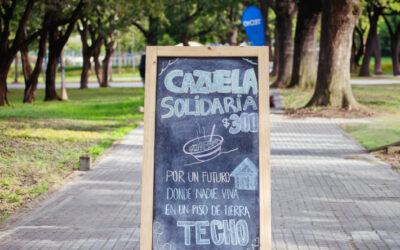 CAZUELA
SOLIDARIA
$300
POR UN FUTURO
DONDE NADIE VIVA
EN UN PISO DE TIERRA
TECHO